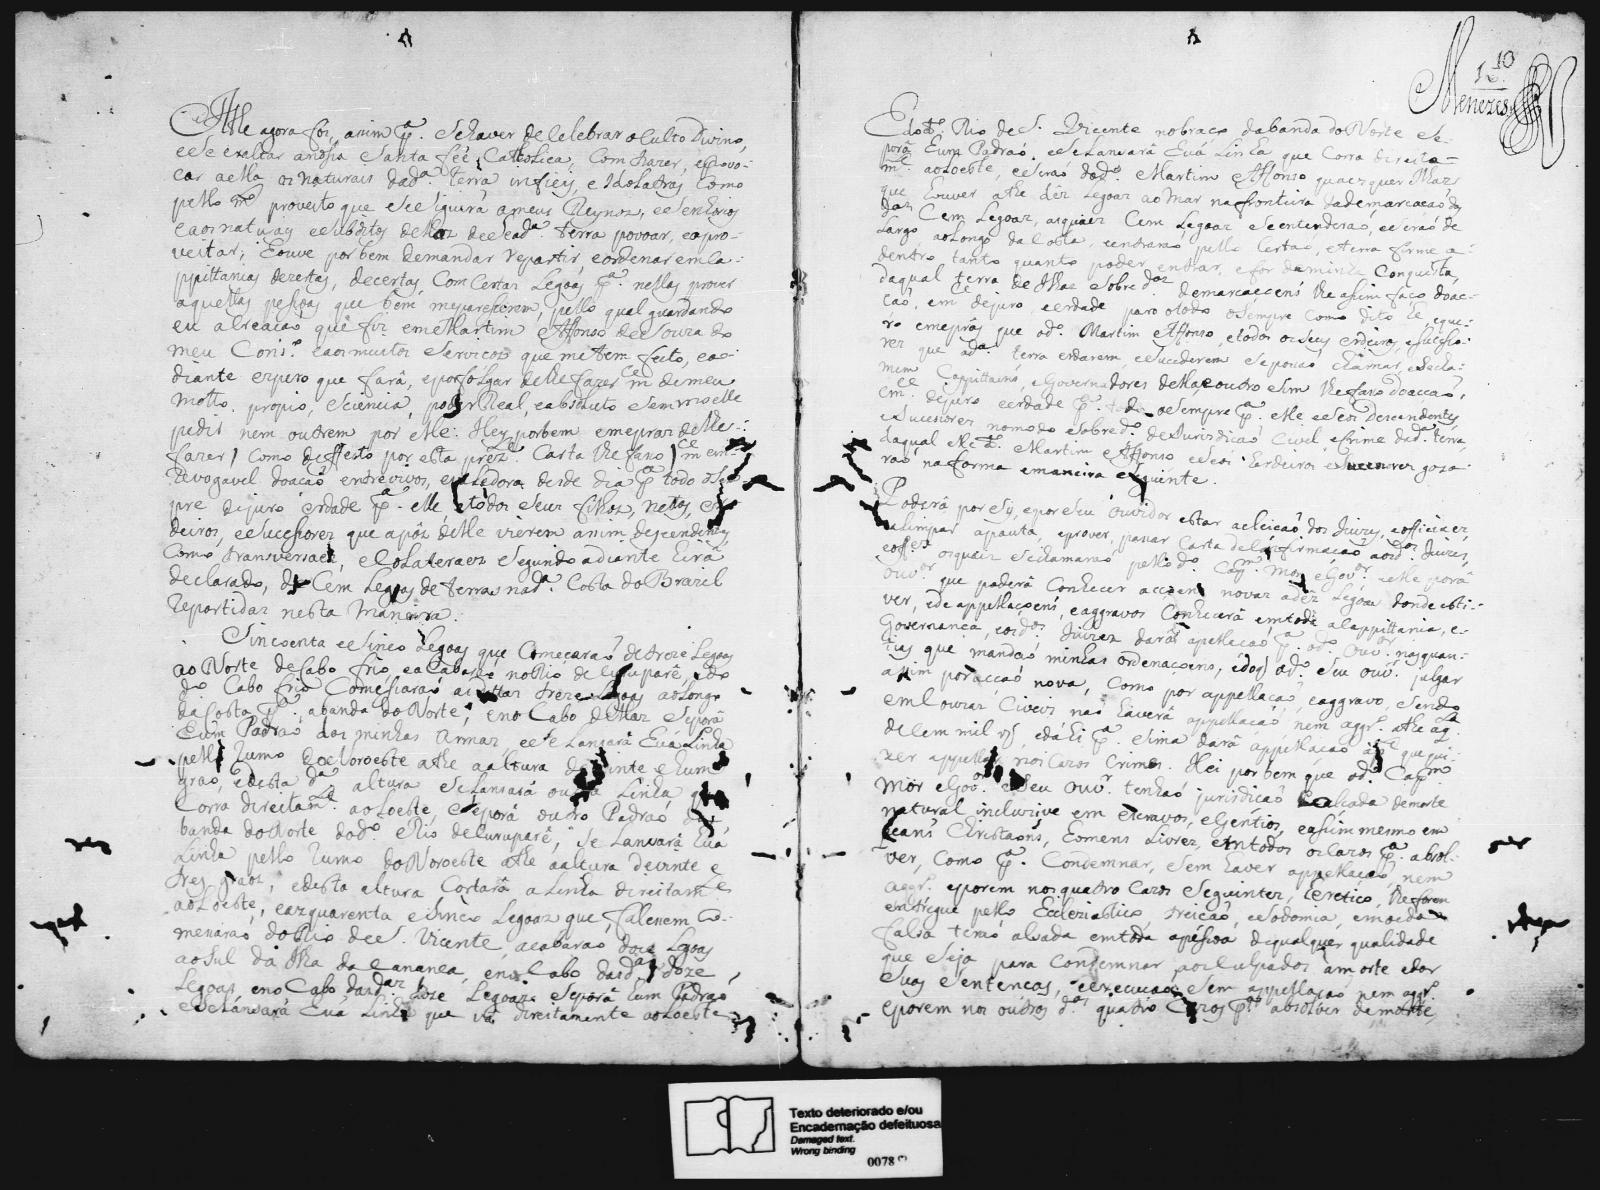 Athe agora foi, asim pª. se haver de celebrar o culto Divino,
e se exaltar a nossa Santa feé Catholica, com trazer, e provo-
car a ella os naturais dadª. terra infieis, e Idolatras, como
pello mto. proveito que se seguirá a meus Reynos, e senhorios
e aos naturais e subditos delles de se adª. terra povoar, e apro-
veitar; Houve por bem demandar repartir e ordenar em Ca-
ppittanias dezertas, de certas, Com Certas Legoas, pª. nellas prover
aquellas pessoas que bem me parecerem, pello qual guardando
eu a creaçaõ que fiz em Martim Affonso de Souza do
meu Consº. e aos muitos serviços que me tem feito, e ao
diante espero que fará, e por folgar de lhe fazer mce de meu
motto propio, sciencia, poder Real, e absoluto sem mo elle
pedir nem outrem por elle: Hey por bem e me praz de lhe
fazer, como de ffeito por esta prezte. Carta lhe faço mce irre-
revogavel doaçaõ entre vivos, valedora desde dia pª. todo sem-
pre de juro e erdade pª. elle e todos seus filhos, nettos, er-
deiros, e sucessores que apóz delle vierem asim descendentes,
Como transversaes, e Colateraes segundo adiante hirá
declarado, de Cem Legoas de terra na dª. Costa do Brazil
repartidas nesta maneira.
Sincoenta e sinco Legoas que Comesaraõ de treze Legoas
ao Norte de Cabo frio e acabaraõ no Rio de Curuparê, e do
do. Cabo frio Comessaraõ as dittas treze Legoas ao Longo
da Costa pª. a banda do Norte; e no Cabo dellas se porá
hum Padraõ das minhas Armas, e se Lansará huã Linha
pello rumo do Noroeste athe a altura de vinte e hum
graõ, e desta dª. altura se Lansará outra Linha que
Corra direitamte. ao Loeste, e se porá outro Padraõ da
banda do Norte do do. Rio de Curuparê, e se Lansará huã
Linha pello rumo do Noroeste athe a altura de vinte e
tres graos; e desta altura Cortará a Linha direitamte
ao Loeste, e as quarenta e sinco Legoas que falecem Co-
mesaraõ do Rio de S. Vicente, e acabaraõ doze Legoas
ao Sul da Ilha da Cananea, e no Cabo das das. doze
Legoas, e no Cabo das das. doze Legoas se porá hum Padraõ
e se Lansará huã Linha que vá direitamente ao Loeste
Menezes
110
E do do. Rio de S. Vicente no braço da banda do Norte se
porá hum Padraõ, e se Lansará huá Linha que corra direita-
mte. ao Loeste, e seraõ do do. Martim Affonso quaesquer Ilhas
que houver athe déz Legoas ao Mar na fronteira da demarcaçaõ das
das Cem Legoas, as quaes Cem Legoas se entenderaõ, e seraõ de
Largo ao Longo da Costa, e entraraõ pello Certaõ, e terra firme a
dentro tanto quanto poder entrar, e for da minha Conquista,
da qual terra e Ilhas sobre das. demarcaçoens lhe asim faço doac-
çaõ, e mce de juro e erdade para todo o sempre como dito he, e que-
ro e me práz que o do. Martim Affonso, e todos os seus erdeiros, e sucesso-
res que a dª. terra erdarem, e sucederem se possaõ chamar, e Cha-
mem Cappittaens, e Governadores dellas, e outro sim lhe faço doacçaõ,
e mce de juro e erdade pª. todo o sempre pª. elle e seos Descendentes,
e Sucessores no modo sobredo. de Jurisdicaõ Civel, e Crime da dª. terra,
da qual elle do. Martim Affonso e seos herdeiros e Sucessores goza-
raõ na forma e maneira seguinte.
Poderá por sy, e por seu Ouvidor estar a eleiçaõ dos Juizes, e officiaes,
e alimpar a pauta, e aprover, passar Carta de Confirmaçaõ aos dos. Juizes,
e offes. os quaes se chamaraõ pello do. Capm. Mor, e Govor. e elle porá
Ouvor. que poderá Conhecer acçoens novas a déz Legoas donde esti-
ver, e de appellaçoens, e aggravos Conhecerá em toda a Cappittania, e
Governança, e os dos. Juizes daraõ apellaçaõ pª. o do. Ouvor. nas quan-
tias que mandaõ minhas ordenaçoens, e do q o do. seu ouvor. julgar
asim por acçaõ nova, como por appellaçaõ, e aggravo, sendo
em Couzas Civeis naõ haverá appellaçaõ nem aggro. athe a qta.
de Cem mil rs, e dahi pª. sima dará appellaçaõ a pte. que qui-
zer appellar, e nos Cazos Crimes. Hei por bem que o do. Capm.
Mór e Govor. e seu Ouvor. tenhaõ jurisdicaõ e alçada de morte
natural inclusive em escravos, e Gentios, e assim mesmo em
peans Christaons, homens Livres, em todos os Cazos, pª. absol-
ver, como pª. Condemnar, sem haver appellaçaõ nem
aggro. e porem nos quatro Cazos Seguintes, heretico, lhe forem
entregue pello Eccleziastico, treiçaõ, e sodomia, e moeda
falsa teraõ alsada em toda apessoa de qualquer qualidade
que seja para Condemnar aos Culpados a morte e dar
suas sentenças, e execuçaõ sem appellaçaõ nem aggro.
e porem nos outros dos. quatro Cazos pª. absolver de morte,
Texto deteriorado e/ou
Encadernação defeituosa
Damaged text.
Wrong binding
0078